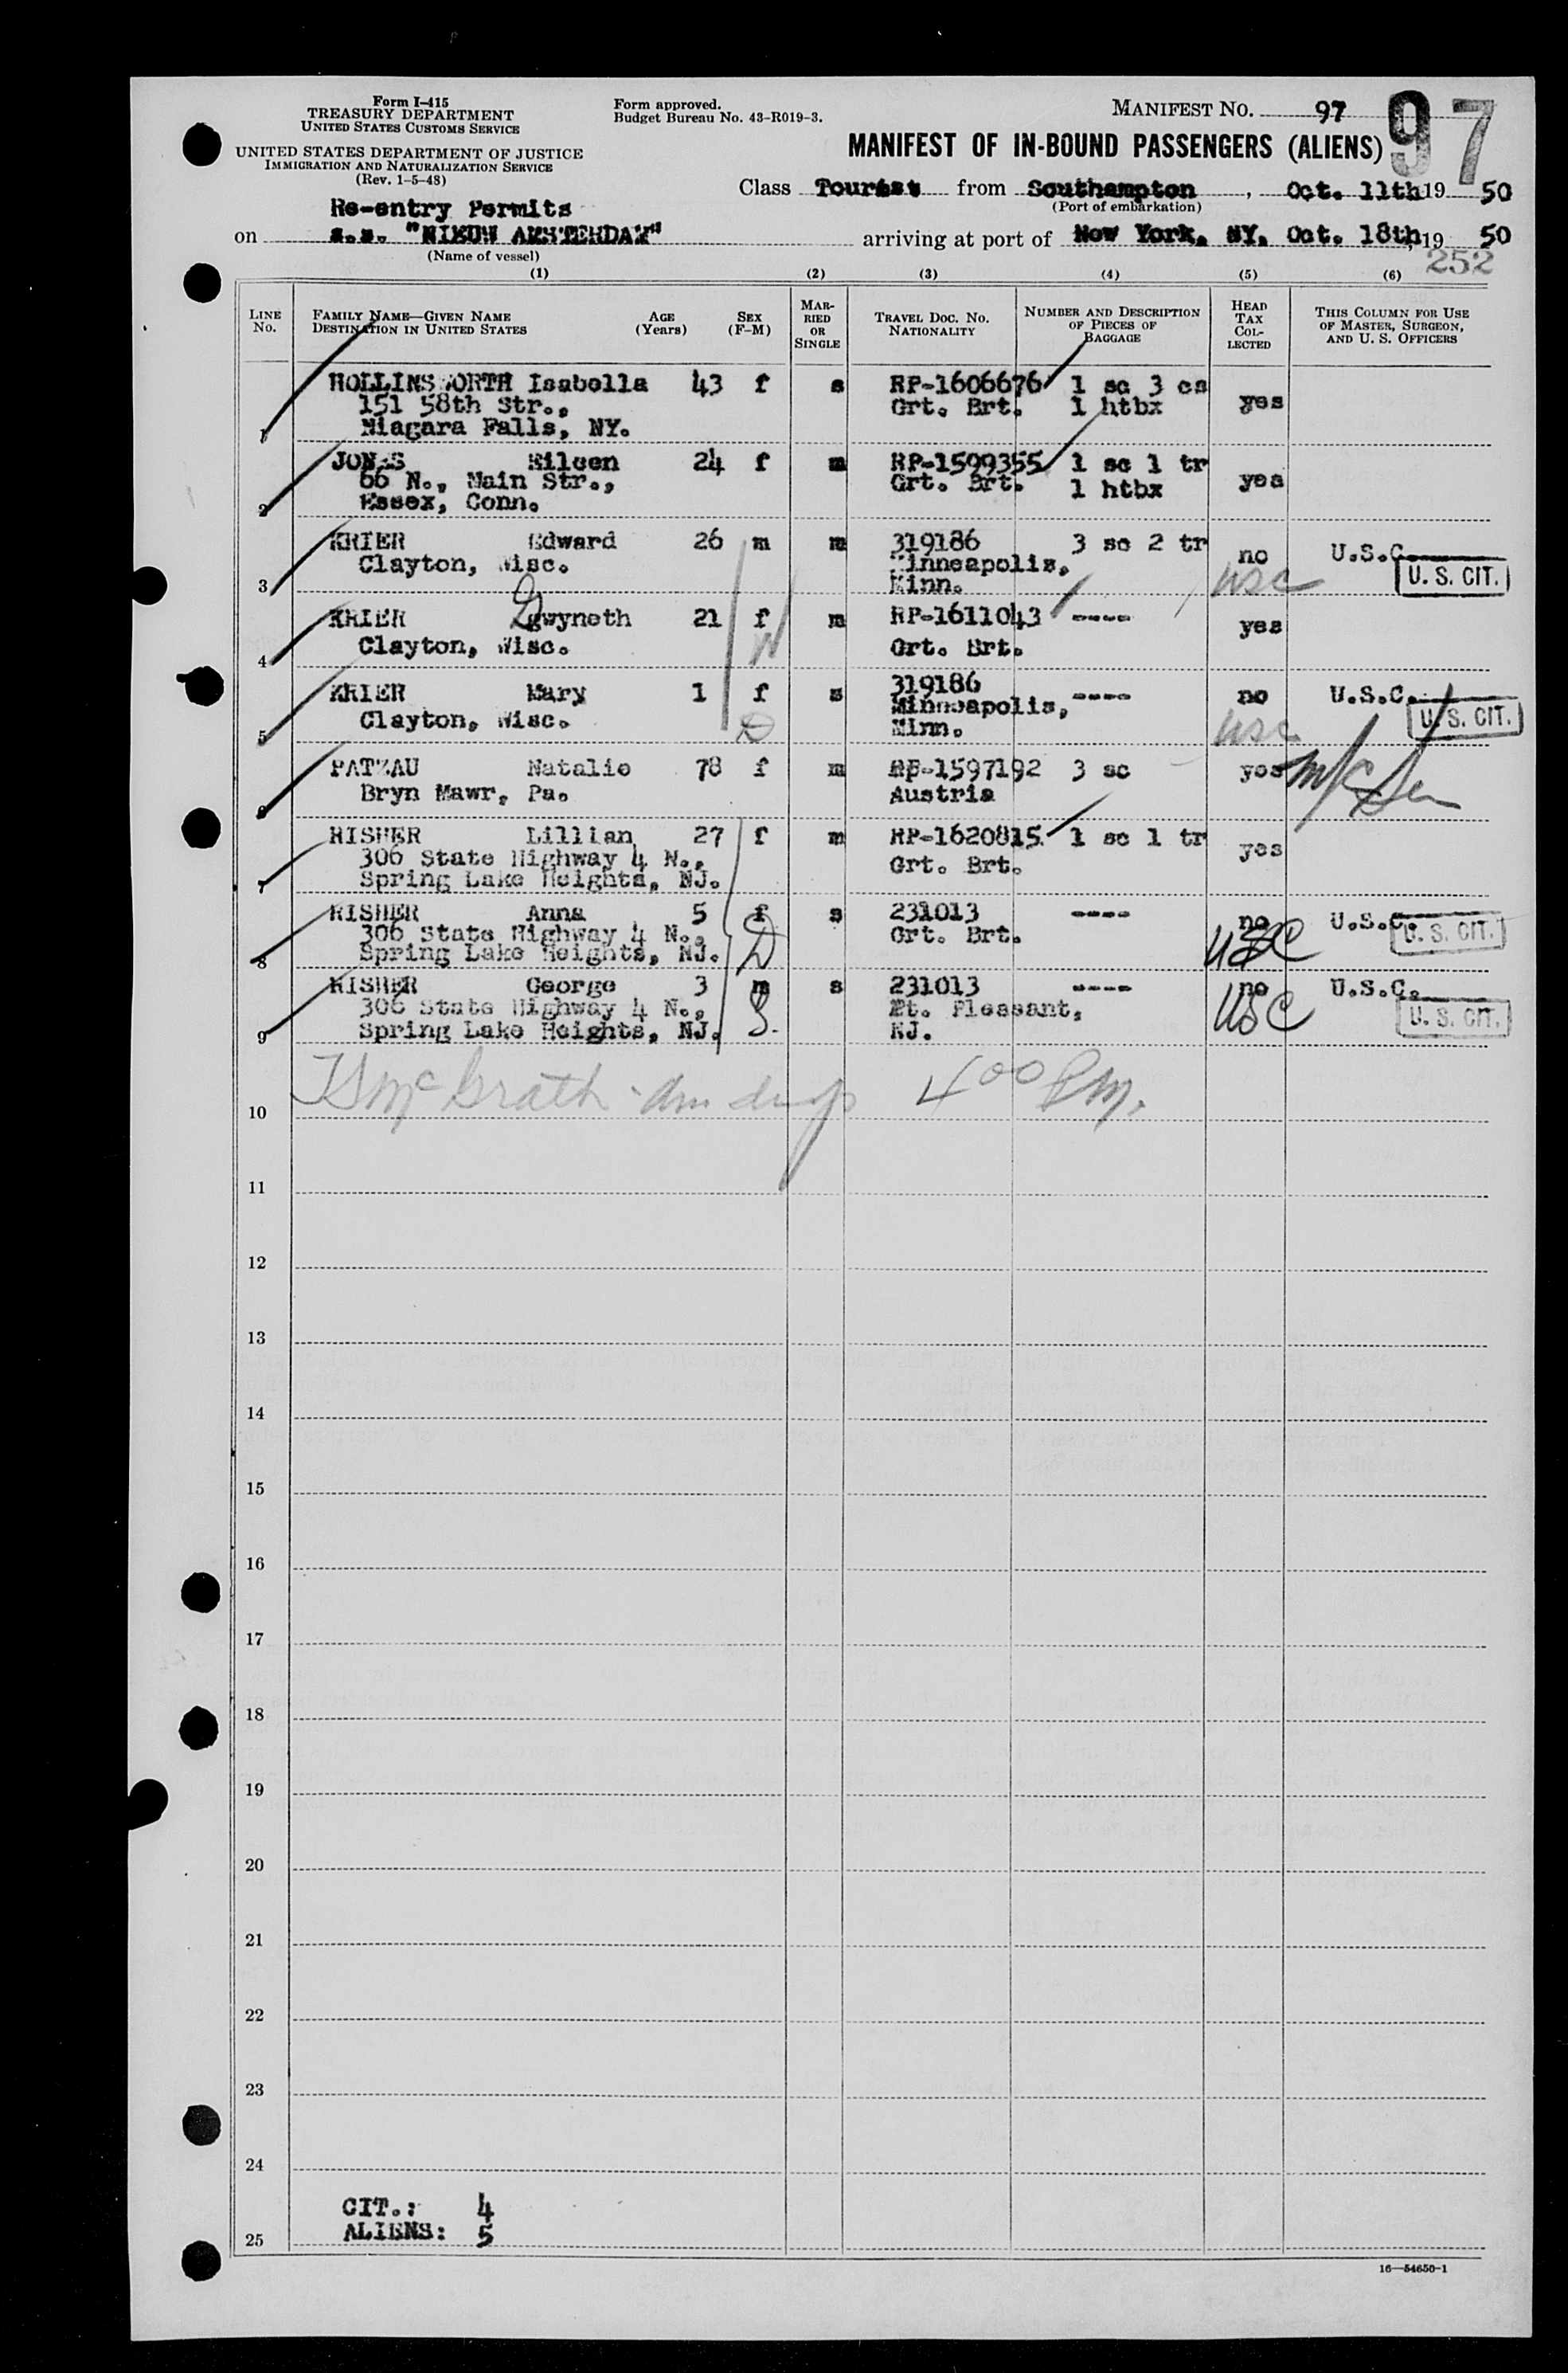 Form I-415
TREASURY DEPARTMENT
UNITED STATES CUSTOMS SERVICE
UNITED STATES DEPARTMENT OF JUSTICE
IMMIGRATION AND NATURALIZATION SERVICE
(Rev. 1-5-48)
Form approved.
Budget Bureau No. 43-R019-3.
MANIFEST NO. 97
97
MANIFEST OF IN-BOUND PASSENGERS (ALIENS)
Class Tourist from Southampton, Oct. 11th 19 50
(Port of embarkation)
Re-entry Permits
on s.s. "NIEUW AMSTERDAM" arriving at port of New York, NY, Oct. 18th, 19 50
(Name of vessel)
252
(1) (2) (3) (4) (5) (6)
LINE No. FAMILY NAME—GIVEN NAME DESTINATION IN UNITED STATES AGE (Years) SEX (F-M) MARRIED OR SINGLE TRAVEL DOC. NO. NATIONALITY NUMBER AND DESCRIPTION OF PIECES OF BAGGAGE HEAD TAX COLLECTED THIS COLUMN FOR USE OF MASTER, SURGEON, AND U. S. OFFICERS
HOLLINSWORTH Isabella 43 f s RP-1606676 1 sc 3 cs
151 58th Str., Grt. Brt. 1 htbx yes
1 Niagara Falls, NY.
JONES Eileen 24 f m RP-1599355 1 sc 1 tr
66 N., Main Str., Grt. Brt. 1 htbx yes
2 Essex, Conn.
KRIER Edward 26 m m 319186 3 sc 2 tr no U.S.C.
Clayton, Wisc. Minneapolis, usc U. S. CIT.
3 Minn.
KRIER Gwyneth 21 f m RP-1611043 ---- yes
4 Clayton, Wisc. W Grt. Brt.
KRIER Mary 1 f s 319186 ---- no U.S.C.
Clayton, Wisc. D Minneapolis, usc U. S. CIT.
5 Minn.
PATZAU Natalie 78 f m RP-1597192 3 sc yes
6 Bryn Mawr, Pa. Austria
RISHER Lillian 27 f m RP-1620815 1 sc 1 tr yes
306 State Highway 4 N., Grt. Brt.
7 Spring Lake Heights, NJ.
RISHER Anna 5 f s 231013 ---- no U.S.C.
306 State Highway 4 N., D Grt. Brt. USC U. S. CIT.
8 Spring Lake Heights, NJ.
RISHER George 3 m s 231013 ---- no U.S.C.
306 State Highway 4 N., S. Pt. Pleasant, USC U. S. CIT.
9 Spring Lake Heights, NJ. NJ.
10 McGrath 4 00 PM.
11
12
13
14
15
16
17
18
19
20
21
22
23
24
CIT.: 4
25 ALIENS: 5
16—54650-1